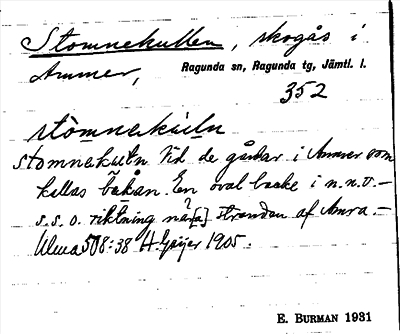 Stomnekullen, skogås i
Ammer,
Ragunda sn, Ragunda tg, Jämtl. l.
352
stòmnekúln
stomnekuln vid de gårdar i Ammer som
kallas båkån. En oval backe i n.n.v.-
s.s.o. riktning nära stranden af Amra.-
Ulma 508:38 H. Geijer 1905.
E. BURMAN 1931